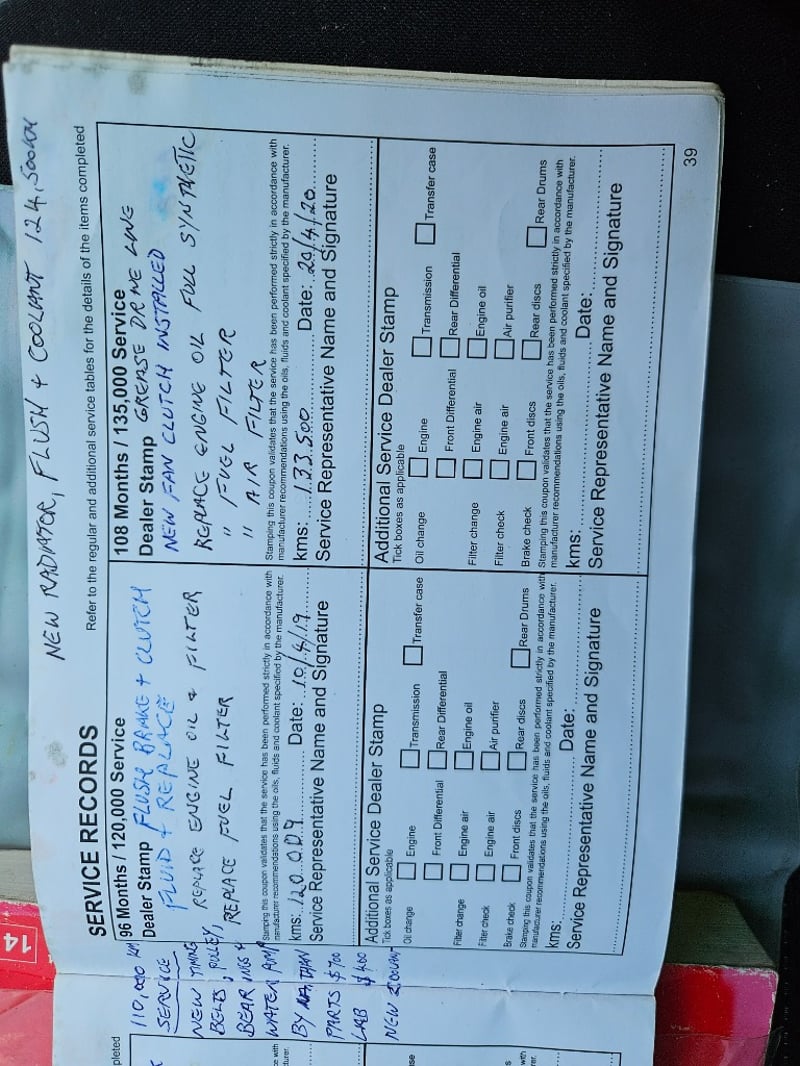 NEW RADIATOR, FLUSH + COOLANT 124,500KM
SERVICE RECORDS
Refer to the regular and additional service tables for the details of the items completed
96 Months / 120,000 Service
Dealer Stamp FLUSH BRAKE + CLUTCH
FLUID + REPLACE
REPLACE ENGINE OIL + FILTER
REPLACE FUEL FILTER
Stamping this coupon validates that the service has been performed strictly in accordance with
manufacturer recommendations using the oils, fluids and coolant specified by the manufacturer.
kms: 120,009 Date: 10/4/19
Service Representative Name and Signature
108 Months / 135,000 Service
Dealer Stamp GREASE DRIVE LINE
NEW FAN CLUTCH INSTALLED
REPLACE ENGINE OIL FULL SYNTHETIC
" FUEL FILTER
" AIR FILTER
Stamping this coupon validates that the service has been performed strictly in accordance with
manufacturer recommendations using the oils, fluids and coolant specified by the manufacturer.
kms: 133,500 Date: 29/4/20
Service Representative Name and Signature
Additional Service Dealer Stamp
Tick boxes as applicable
Oil change Engine Transmission Transfer case
Front Differential Rear Differential
Filter change Engine air Engine oil
Filter check Engine air Air purifier
Brake check Front discs Rear discs Rear Drums
Stamping this coupon validates that the service has been performed strictly in accordance with
manufacturer recommendations using the oils, fluids and coolant specified by the manufacturer.
kms: Date:
Service Representative Name and Signature
Additional Service Dealer Stamp
Tick boxes as applicable
Oil change Engine Transmission Transfer case
Front Differential Rear Differential
Filter change Engine air Engine oil
Filter check Engine air Air purifier
Brake check Front discs Rear discs Rear Drums
Stamping this coupon validates that the service has been performed strictly in accordance with
manufacturer recommendations using the oils, fluids and coolant specified by the manufacturer.
kms: Date:
Service Representative Name and Signature
39
110,000 KM
SERVICE
NEW TIMING
BELTS, PULLEY,
BEARINGS +
WATER
BY
PARTS $700
LAB $400
NEW
pleted
ce with
turer.
se
14